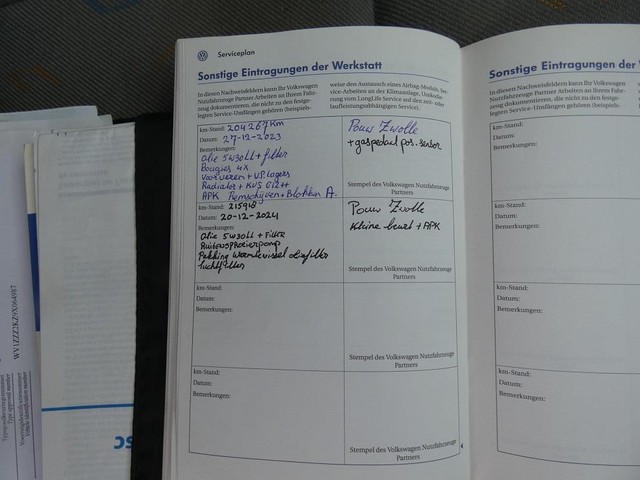 Serviceplan
Sonstige Eintragungen der Werkstatt
In diesen Nachweisfeldern kann Ihr Volkswagen
Nutzfahrzeuge Partner Arbeiten an Ihrem Fahr-
zeug dokumentieren, die nicht zu den festge-
legten Service-Umfängen gehören (beispiels-
weise den Austausch eines Airbag-Moduls, Ser-
vice-Arbeiten an der Klimaanlage, Umkodie-
rung vom LongLife Service auf den zeit- oder
laufleistungsabhängigen Service).
km-Stand: 204267 km
Datum: 27-12-2023
Bemerkungen:
olie 5w30LL + filter
Bougies 4x
Voorveren + V.P. Lagers
Radiator + KVS G12++
APK Remschijven + Blokken A.
Pouw Zwolle
+ gaspedaal pos. sensor
Stempel des Volkswagen Nutzfahrzeuge
Partners
km-Stand: 215918
Datum: 20-12-2024
Bemerkungen:
olie 5w30LL + Filter
Ruitensproeierpomp
Pakking warmtewissel oliefilter
luchtfilter
Pouw Zwolle
Kleine beurt + APK
Stempel des Volkswagen Nutzfahrzeuge
Partners
km-Stand:
Datum:
Bemerkungen:
Stempel des Volkswagen Nutzfahrzeuge
Partners
km-Stand:
Datum:
Bemerkungen:
Stempel des Volkswagen Nutzfahrzeuge
Partners
Sonstige Eintragungen der
In diesen Nachweisfeldern kann Ihr Volkswagen
Nutzfahrzeuge Partner Arbeiten an Ihrem Fahr-
zeug dokumentieren, die nicht zu den festge-
legten Service-Umfängen gehören (beispiels-
km-Stand:
Datum:
Bemerkungen:
km-Stand:
Datum:
Bemerkungen:
km-Stand:
Datum:
Bemerkungen:
km-Stand:
Datum:
Bemerkungen:
WV1ZZZ2KZ9X064987
Type approval number